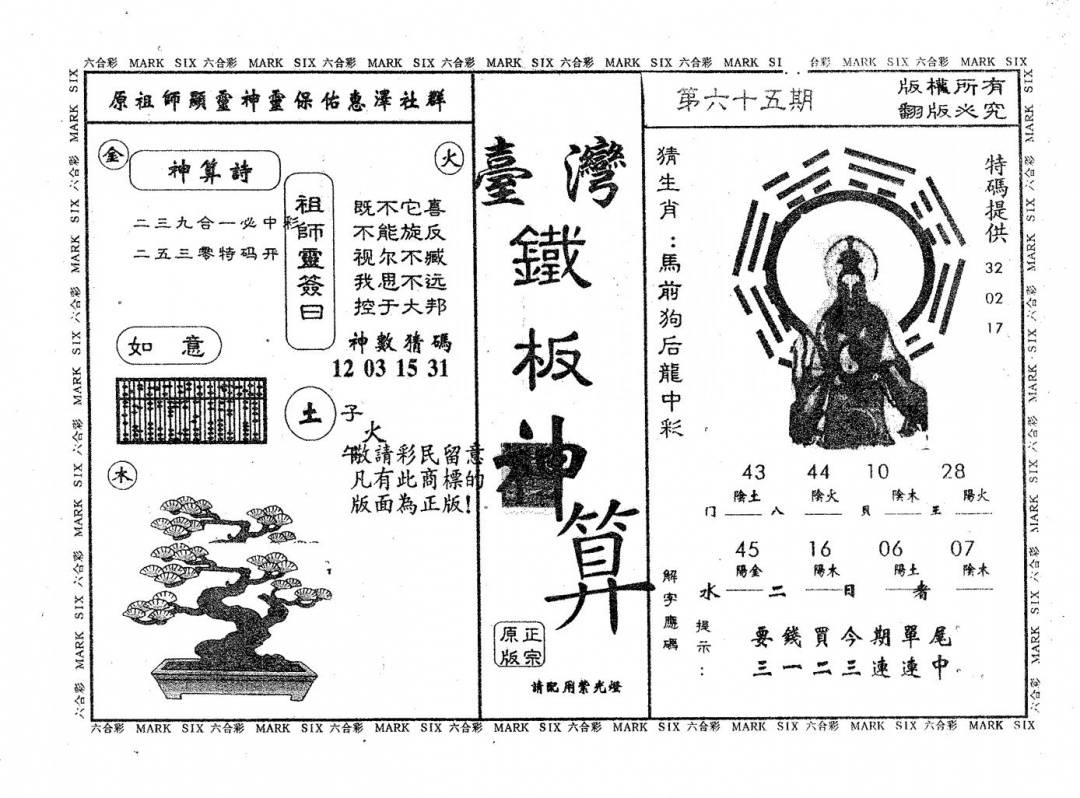 六合彩 MARK SIX 六合彩 MARK SIX 六合彩 MARK SIX 六合彩 MARK SIX 六合彩 MARK SIX 六合彩 MARK SI 合彩 MARK SIX 六合彩 MARK SIX
原祖師顯靈神靈保佑惠澤社群
金
神算詩
火
二三九合一必中彩
二五三零特码开
祖師靈簽曰
既不它喜
不能旋反
视尔不臧
我思不远
控于大邦
神數猜碼
12 03 15 31
如意
土
子
火
午
敬請彩民留意
凡有此商標的
版面為正版!
木
臺灣
鐵板神算
正宗
原版
請配用紫光燈
第六十五期
版權所有
翻版必究
猜生肖：馬前狗后龍中彩
特碼提供
32
02
17
43 44 10 28
陰土 陰火 陰木 陽火
门 八 貝 王
45 16 06 07
陽金 陽木 陽土 陰木
水 二 日 者
解字應碼
提示：
要錢買今期單尾
三一二三連連中。
六合彩 MARK SIX 六合彩 MARK SIX 六合彩 MARK SIX 六合彩 MARK SIX 六合彩 MARK SIX 六合彩 MARK SIX 六合彩 MARK SIX 六合彩 MARK SIX
六合彩 MARK SIX 六合彩 MARK SIX 六合彩 MARK SIX 六合彩 MARK SIX 六合彩 MARK SIX
六合彩 MARK SIX 六合彩 MARK SIX 六合彩 MARK SIX 六合彩 MARK SIX 六合彩 MARK SIX